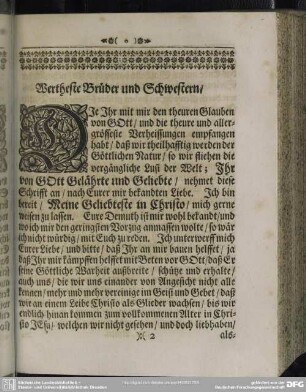 Wertheste Brüder und Schwestern/
DIe Ihr mit mir den theuren Glauben
von GOtt/ und die theure und aller-
grösseste Verheissungen empfangen
habt/ daß wir theilhafftig werden der
Göttlichen Natur/ so wir fliehen die
vergängliche Lust der Welt; Ihr
von GOtt Gelährte und Geliebte/ nehmet diese
Schrifft an/ nach Eurer mir bekandten Liebe. Ich bin
bereit/ Meine Geliebteste in Christo/ mich gerne
weisen zu lassen. Eure Demuth ist mir wohl bekand/ und
wo ich mir den geringsten Vorzug anmassen wolte/ so wär
ich nicht würdig/ mit Euch zu reden. Ich unterwerff mich
Eurer Liebe/ und bitte/ daß Ihr an mir bauen helffet/ ja
daß Ihr mir kämpffen helffet mit Beten vor GOtt/ daß Er
seine Göttliche Warheit außbreite/ schütze und erhalte/
auch uns/ die wir uns einander von Angesicht nicht alle
kennen/ mehr und mehr vereinige im Geist und Gebet/ daß
wir an einem Leibe Christo als Glieder wachsen/ bis wir
endlich hinan kommen zum vollkommenen Alter in Chri-
sto JEsu/ welchen wir nicht gesehen/ und doch lieb haben/
)( 2
als-